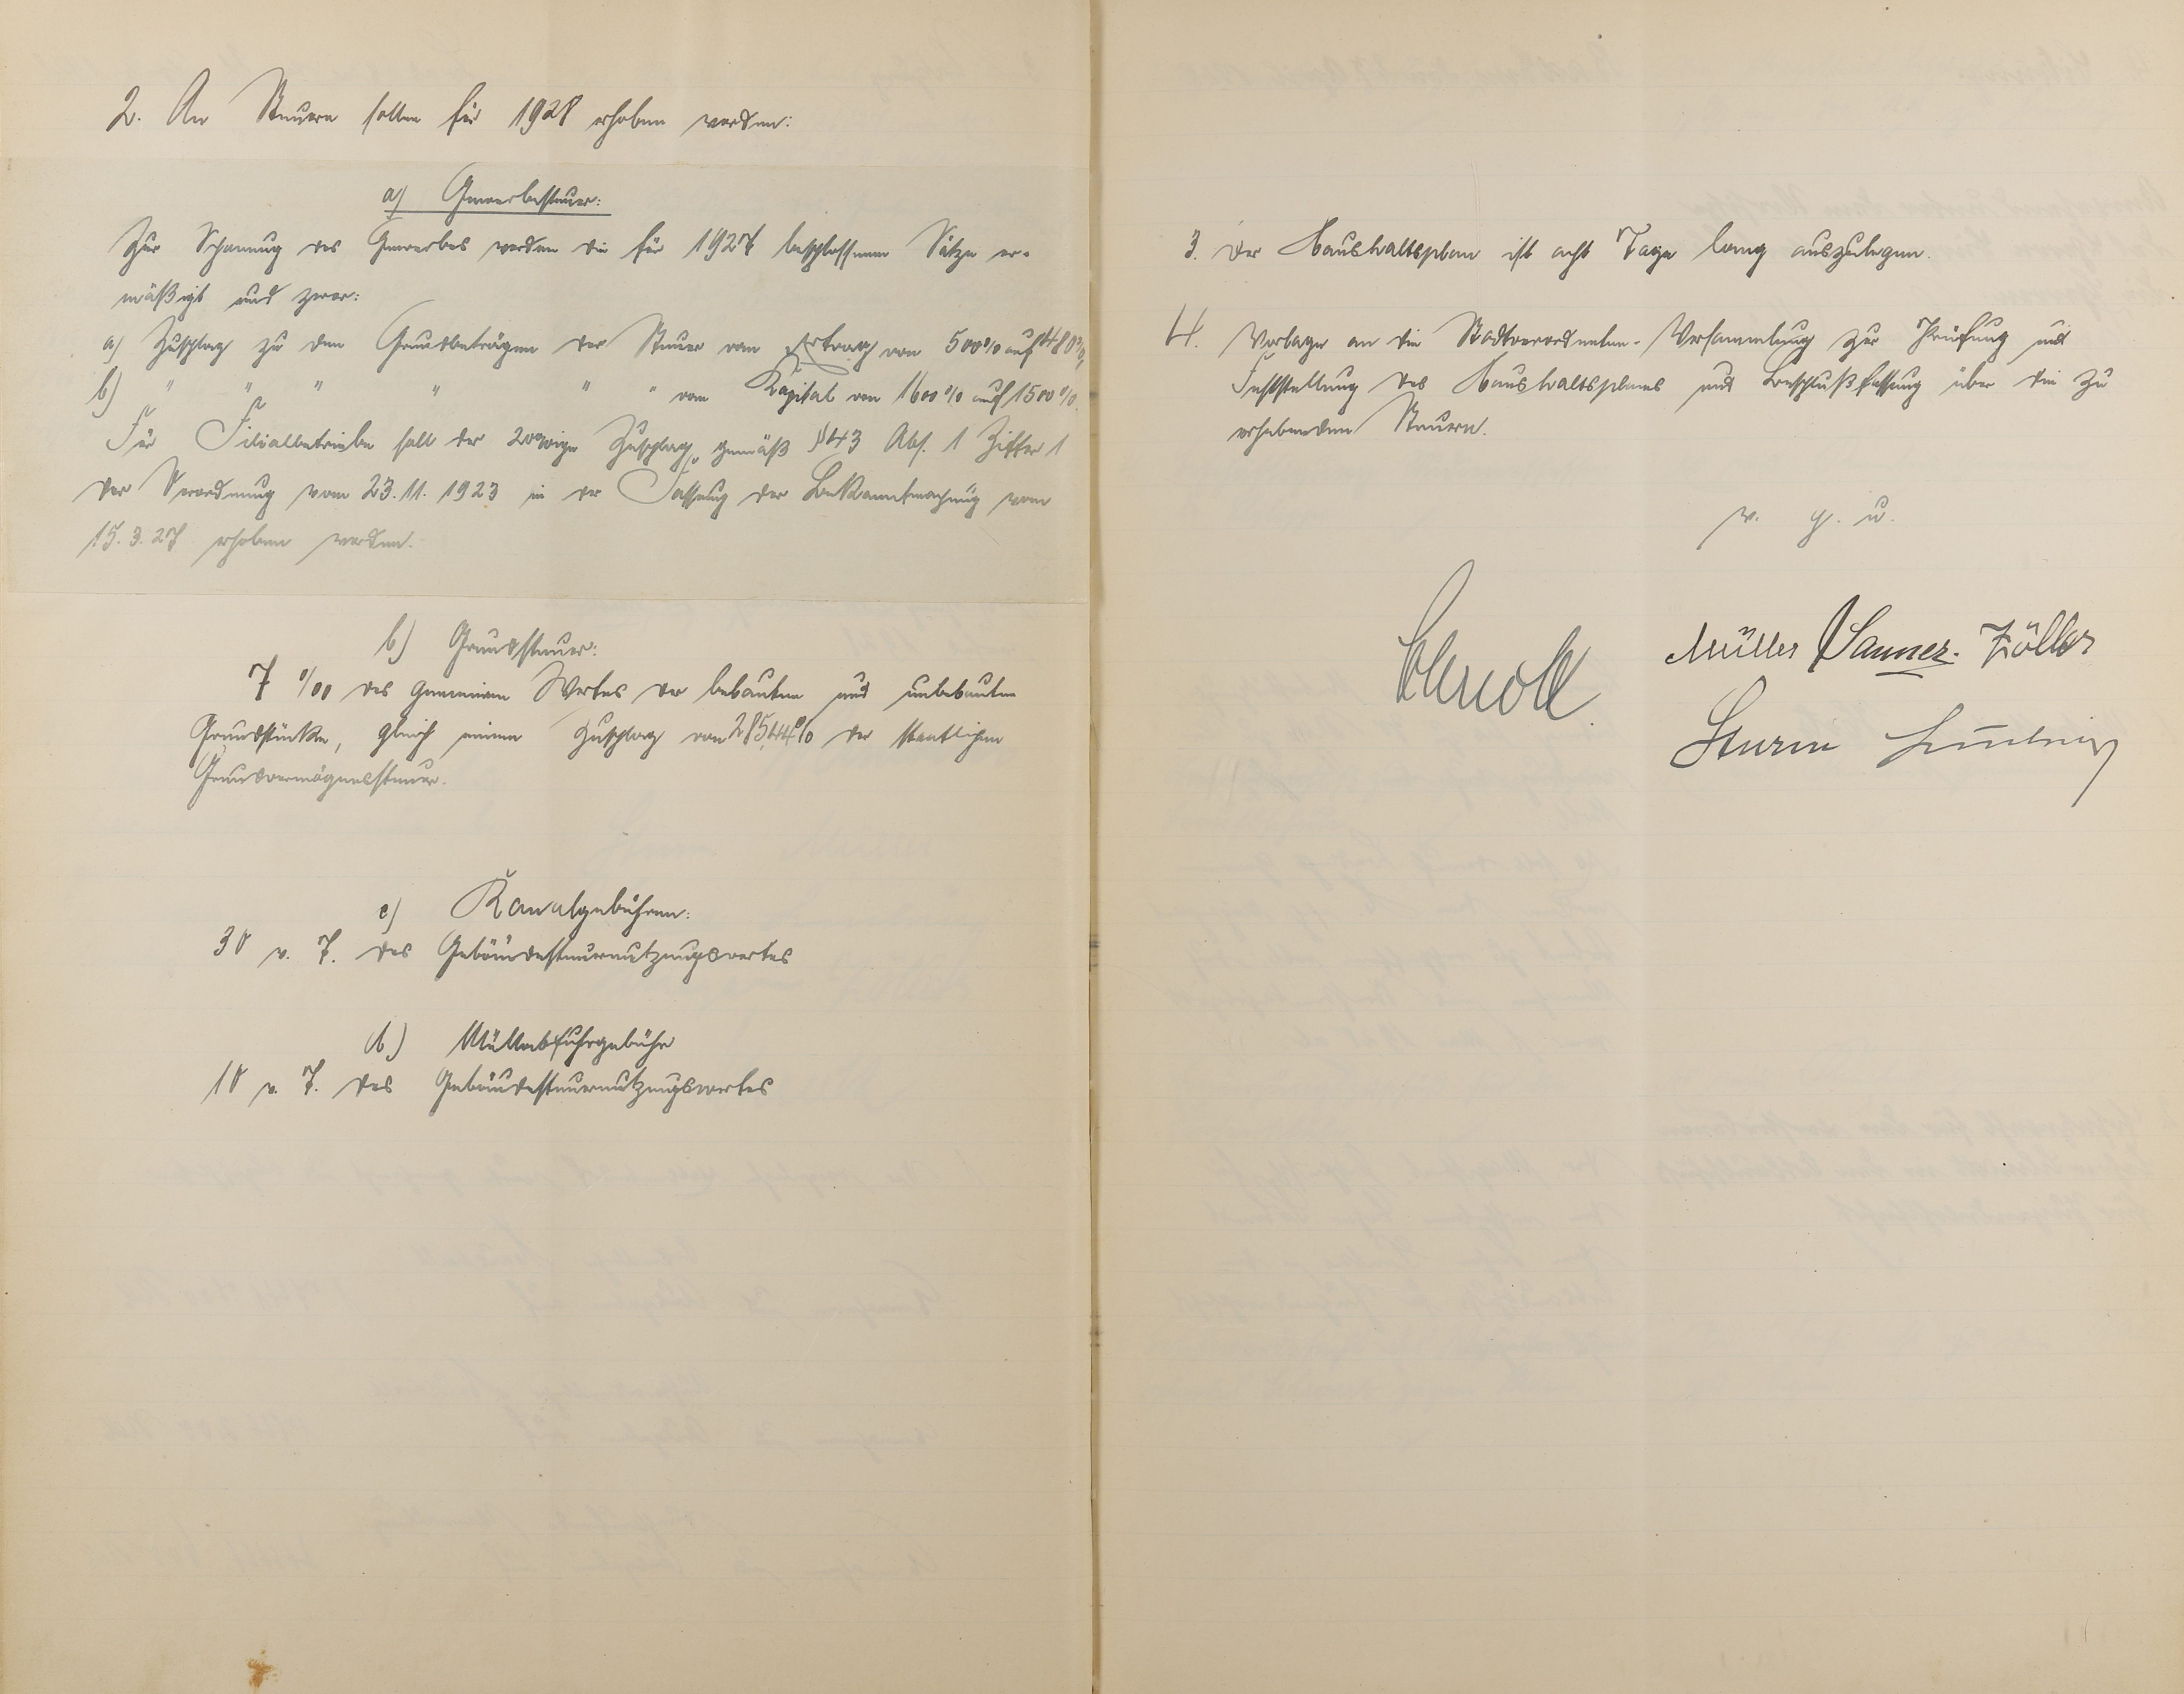 2. An Steuern sollen für 1928 erhoben werden:
a) Gewerbesteuer:
Zur Schonung des Gewerbes werden die für 1927 beschlossenen Sätze er-
mäßigt und zwar:
a) Zuschlag zu den Grundbeträgen der Steuer vom Ertrag von 500% auf 480%,
b) " " " " " " vom Kapital von 1600% auf 1500%.
Für Filialbetriebe soll der 20%ige Zuschlag gemäß §43 Abs. 1 Ziffer 1
der Verordnung vom 23.11.1923 in der Fassung der Bekanntmachung vom
15.3.27 erhoben werden.
b) Grundsteuer:
7 ‰ des gemeinen Wertes der bebauten und unbebauten
Grundstücke, gleich einem Zuschlag von 285,44% der staatlichen
Grundvermögenssteuer.
c) Kanalgebühren:
30 v. T. des Gebäudesteuernutzungswertes
d) Müllabfuhrgebühr
10 v. T. des Gebäudesteuernutzungswertes
3. Der Haushaltsplan ist acht Tage lang auszulegen.
4. Vorlage an die Stadtverordneten-Versammlung zur Prüfung und
Feststellung des Haushaltsplanes und Beschlußfassung über die zu
erhebenden Steuern.
v. g. u.
Müller Sauner. Zöller
Sturm